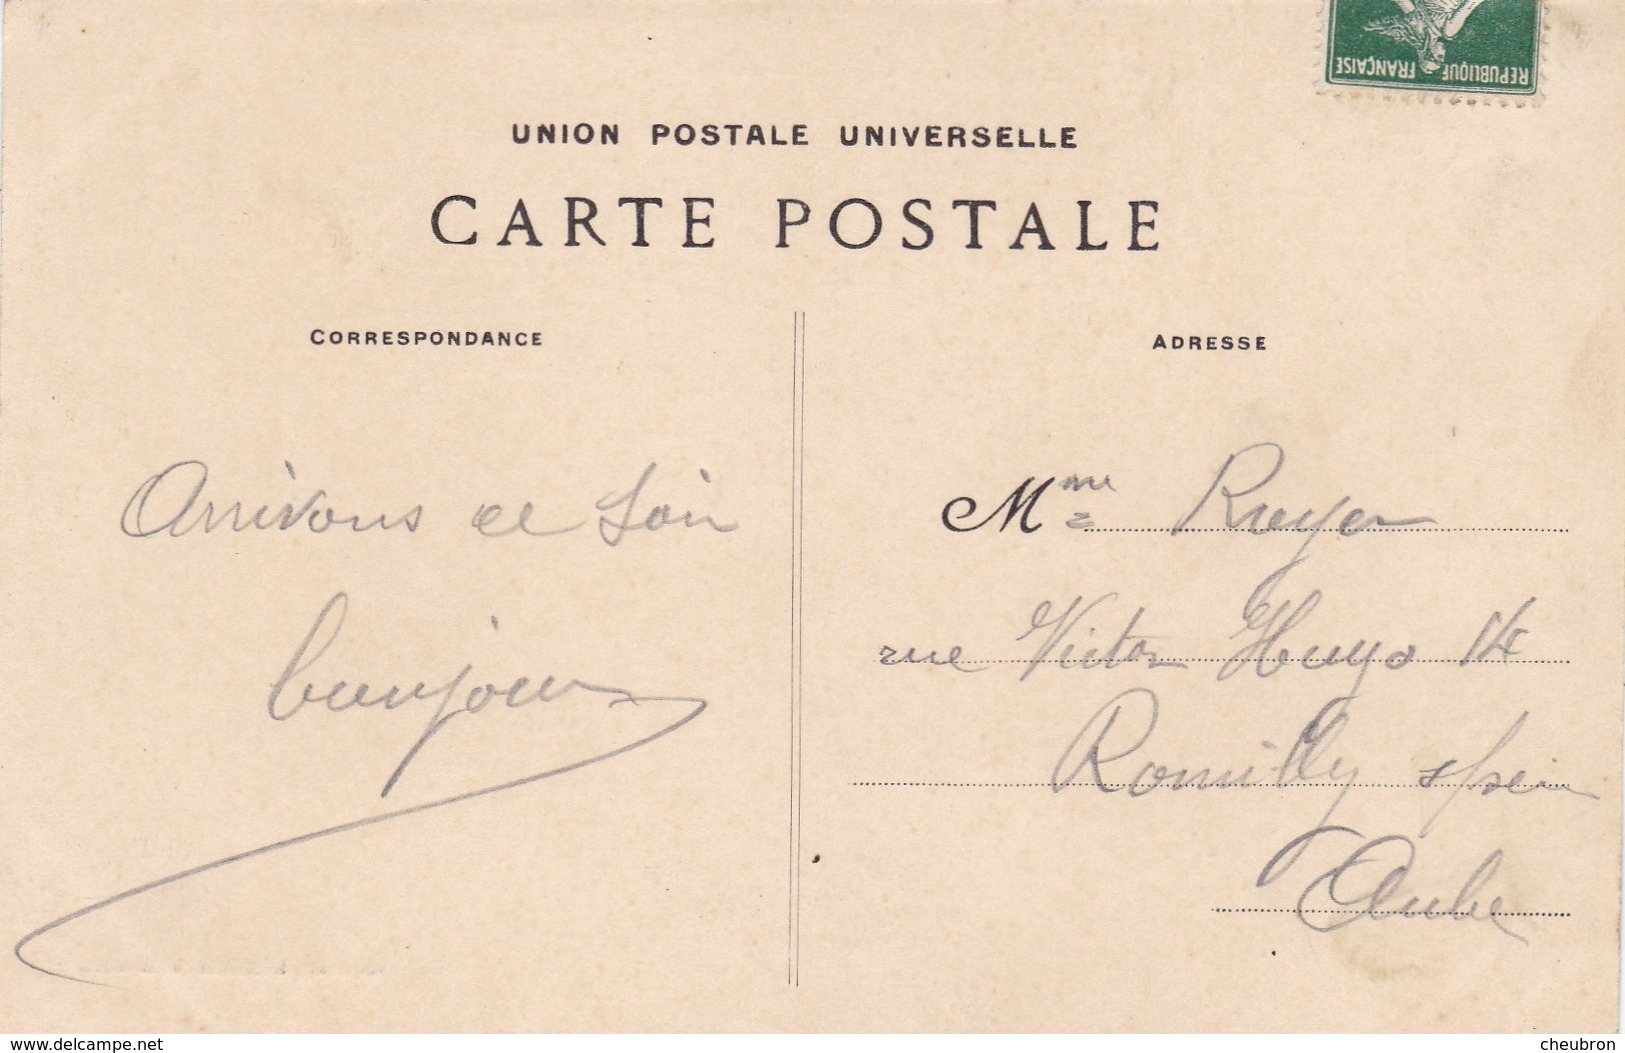 RÉPUBLIQUE FRANÇAISE
UNION POSTALE UNIVERSELLE
CARTE POSTALE
CORRESPONDANCE
Arrivons ce soir
bonjour
ADRESSE
Mme Royer
rue Victor Hugo 14
Romilly s/sein
Aube
www.delcampe.net
cheubron